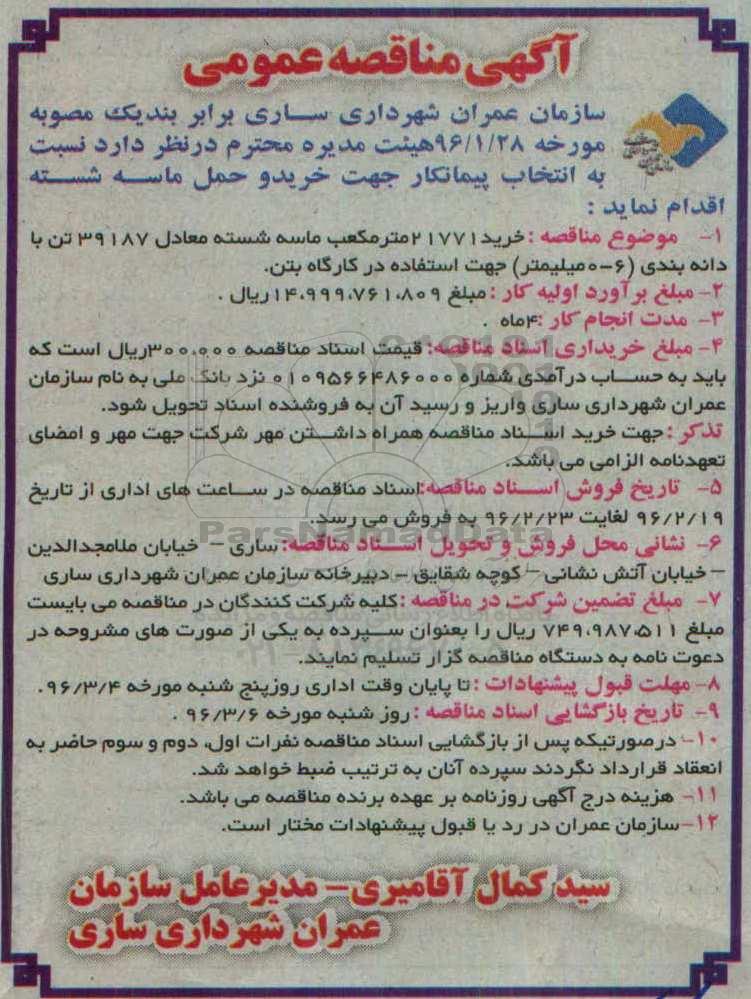 آگهی مناقصه عمومی
سازمان عمران شهرداری ساری برابر بندیک مصوبه
مورخه ۹۶/۱/۲۸هیئت مدیره محترم درنظر دارد نسبت
به انتخاب پیمانکار جهت خریدو حمل ماسه شسته
اقدام نماید :
۱- موضوع مناقصه :خرید۲۱۷۷۱مترمکعب ماسه شسته معادل ۳۹۱۸۷ تن با
دانه بندی (۶-۰میلیمتر) جهت استفاده در کارگاه بتن.
۲- مبلغ برآورد اولیه کار :مبلغ ۱۴،۹۹۹،۷۶۱،۸۰۹ریال .
۳- مدت انجام کار :۴ماه .
۴- مبلغ خریداری اسناد مناقصه: قیمت اسناد مناقصه ۳۰۰،۰۰۰ریال است که
باید به حساب درآمدی شماره ۰۱۰۹۵۶۶۴۸۶۰۰۰ نزد بانک ملی به نام سازمان
عمران شهرداری ساری واریز و رسید آن به فروشنده اسناد تحویل شود.
تذکر :جهت خرید اسناد مناقصه همراه داشتن مهر شرکت جهت مهر و امضای
تعهدنامه الزامی می باشد.
۵- تاریخ فروش اسناد مناقصه:اسناد مناقصه در ساعت های اداری از تاریخ
۹۶/۲/۱۹ لغایت ۹۶/۲/۲۳ به فروش می رسد.
ParsNamadData
۶- نشانی محل فروش و تحویل اسناد مناقصه: ساری – خیابان ملامجدالدین
– خیابان آتش نشانی – کوچه شقایق – دبیرخانه سازمان عمران شهرداری ساری
۷- مبلغ تضمین شرکت در مناقصه :کلیه شرکت کنندگان در مناقصه می بایست
مبلغ ۷۴۹،۹۸۷،۵۱۱ ریال را بعنوان سپرده به یکی از صورت های مشروحه در
دعوت نامه به دستگاه مناقصه گزار تسلیم نمایند.
۸- مهلت قبول پیشنهادات :تا پایان وقت اداری روزپنج شنبه مورخه ۹۶/۳/۴.
۹- تاریخ بازگشایی اسناد مناقصه :روز شنبه مورخه ۹۶/۳/۶ .
۱۰- درصورتیکه پس از بازگشایی اسناد مناقصه نفرات اول، دوم و سوم حاضر به
انعقاد قرارداد نگردند سپرده آنان به ترتیب ضبط خواهد شد.
۱۱- هزینه درج آگهی روزنامه بر عهده برنده مناقصه می باشد.
۱۲-سازمان عمران در رد یا قبول پیشنهادات مختار است.
سید کمال آقامیری- مدیرعامل سازمان
عمران شهرداری ساری